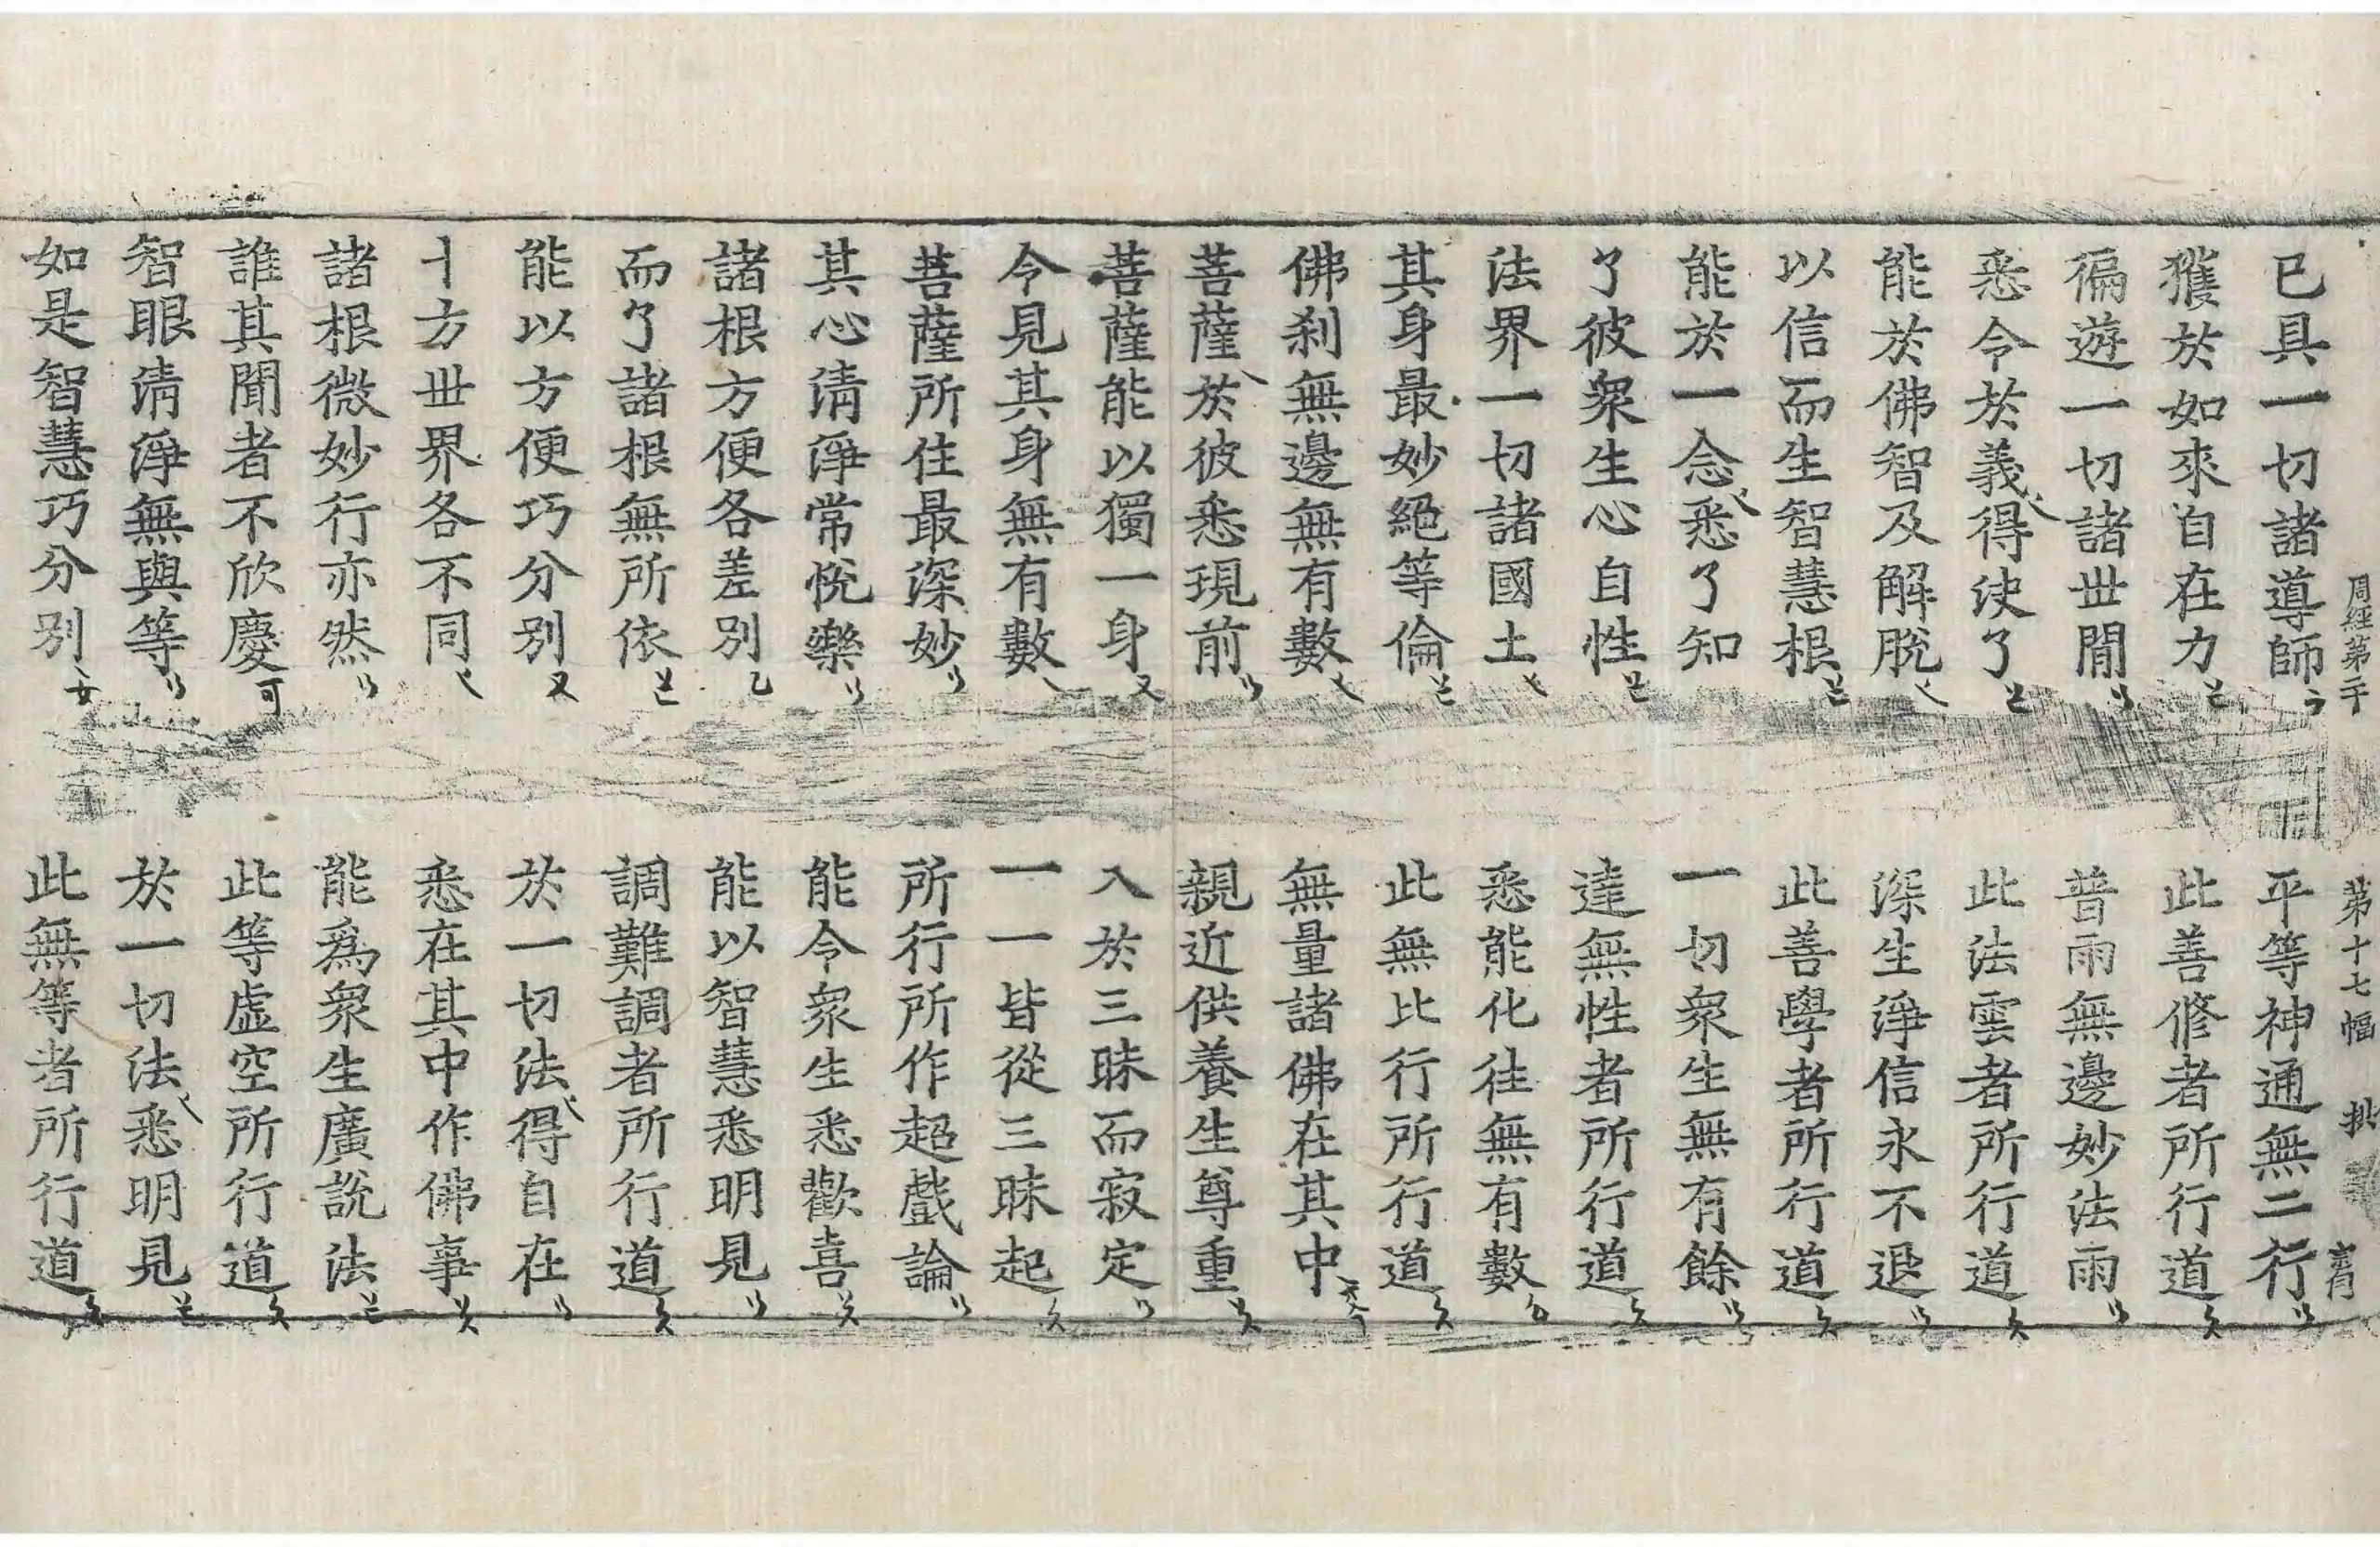 周經第二十 第十七幅 拱 育
已具一切諸導師 平等神通無二行
獲於如來自在力 此善修者所行道
徧遊一切諸世間 普雨無邊妙法雨
悉令於義得決了 此法雲者所行道
能於佛智及解脫 深生淨信永不退
以信而生智慧根 此善學者所行道
能於一念悉了知 一切衆生無有餘
了彼衆生心自性 達無性者所行道
法界一切諸國土 悉能化往無有數
其身最妙絕等倫 此無比行所行道
佛刹無邊無有數 無量諸佛在其中
菩薩於彼悉現前 親近供養生尊重
菩薩能以獨一身 入於三昧而寂定
令見其身無有數 一一皆從三昧起
菩薩所住最深妙 所行所作超戲論
其心淸淨常悅樂 能令衆生悉歡喜
諸根方便各差別 能以智慧悉明見
而了諸根無所依 調難調者所行道
能以方便巧分別 於一切法得自在
十方世界各不同 悉在其中作佛事
諸根微妙行亦然 能爲衆生廣說法
誰其聞者不欣慶 此等虛空所行道
智眼淸淨無與等 於一切法悉明見
如是智慧巧分別 此無等者所行道